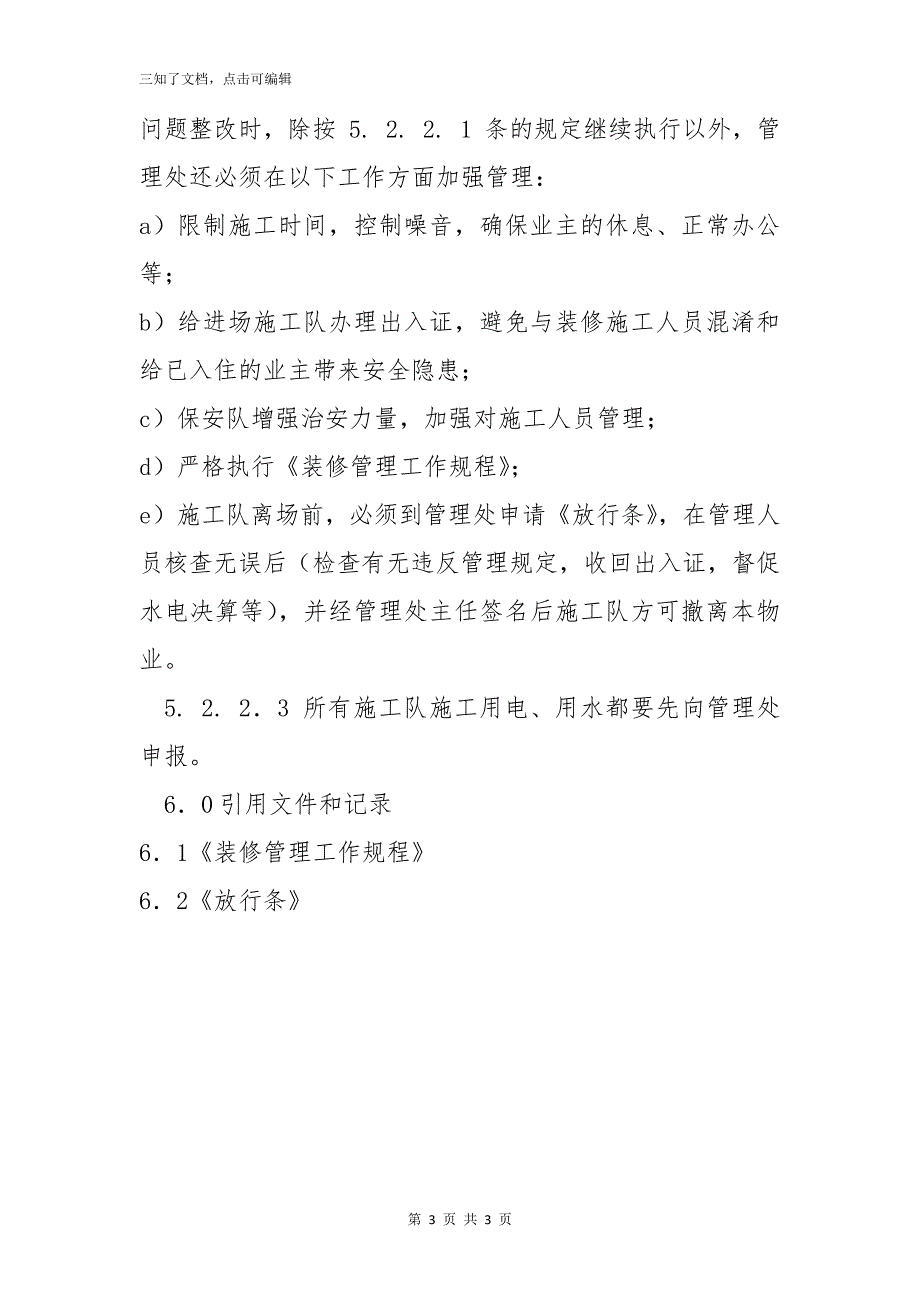 三知了文档，点击可编辑
问题整改时，除按 5．2．2．1 条的规定继续执行以外，管
理处还必须在以下工作方面加强管理：
a）限制施工时间，控制噪音，确保业主的休息、正常办公
等；
b）给进场施工队办理出入证，避免与装修施工人员混淆和
给已入住的业主带来安全隐患；
c）保安队增强治安力量，加强对施工人员管理；
d）严格执行《装修管理工作规程》；
e）施工队离场前，必须到管理处申请《放行条》，在管理人
员核查无误后（检查有无违反管理规定，收回出入证，督促
水电决算等），并经管理处主任签名后施工队方可撤离本物
业。
5．2．2．3 所有施工队施工用电、用水都要先向管理处
申报。
6．0引用文件和记录
6．1《装修管理工作规程》
6．2《放行条》
第 3 页 共 3 页